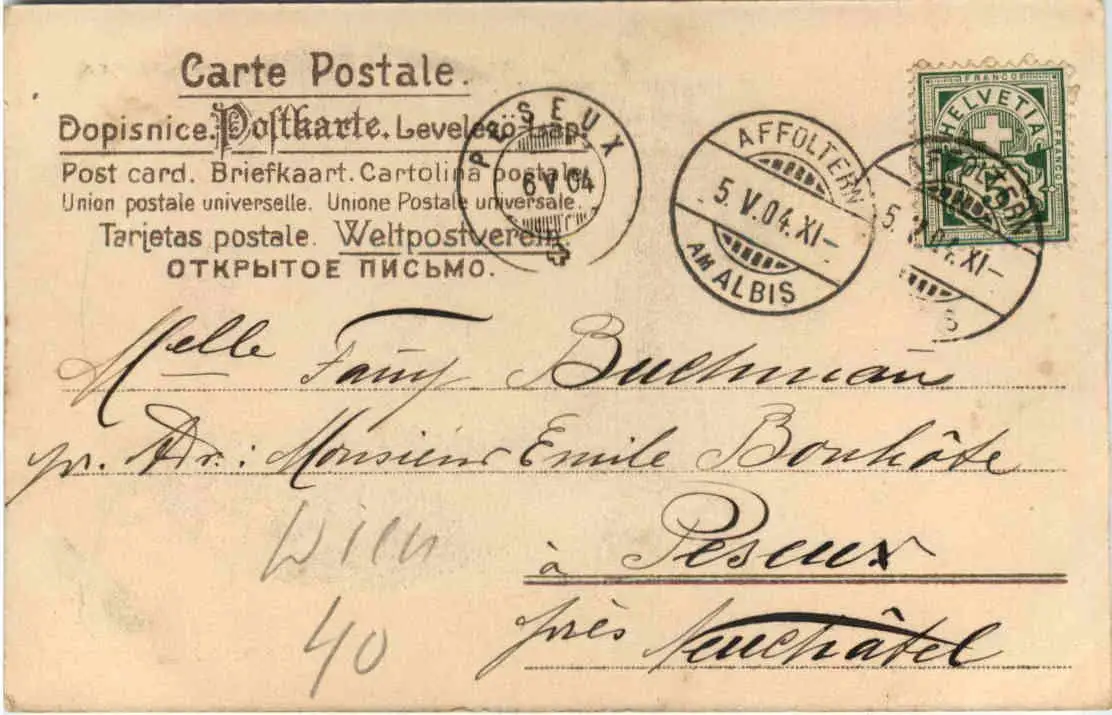 Carte Postale.
Dopisnice. Postkarte. Levelező-Lap.
Post card. Briefkaart. Cartolina postale.
Union postale universelle. Unione Postale universale.
Tarjetas postale. Weltpostverein.
ОТКРЫТОЕ ПИСЬМО.
PESEUX
6 V.04
AFFOLTERN
5.V.04.XI-
AM ALBIS
FRANCO
HELVETIA
FRANCO
AFFOLTERN
5.V.04.XI-
S
Melle Fanny Buchmann
pr. Adr.: Monsieur Emile Bonhôte
à Peseux
près Neuchâtel
40